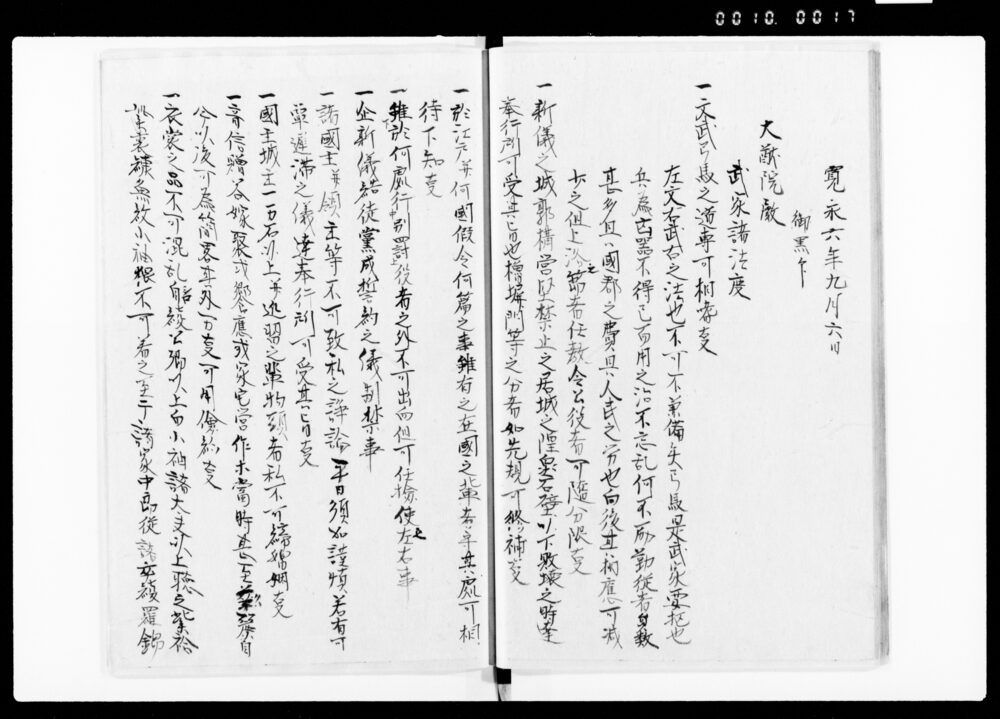 0010.0017
寛永六年九月六日
御黒印
大猷院殿
武家諸法度
一文武弓馬之道専可相嗜事
左文右武古之法也不可不兼備矣弓馬是武家要枢也
兵為凶器不得已而用之治不忘乱何不励勤従者員数
甚多且ハ国郡之費且ハ人民之労也向後其相応可減
少之但上洛之節者任教令公役者可随分限事
一新儀之城郭構営堅禁止之居城之隍塁石壁以下敗壊之時達
奉行所可受其旨也櫓塀門等之分者如先規可修補事
一於江戸并何国仮令何篇之事雖有之在国之輩者守其處可相
待下知事
一雖於何處行刑罰役者之外不可出向但可任検使之左右事
一企新儀結徒党成誓約之儀制禁事
一諸国主并領主等不可致私之諍論平日須加謹慎若有可
及遅滞之儀達奉行所可受其旨事
一国主城主一万石以上并近習之輩物頭者私不可締婚姻事
一音信贈答嫁娶或饗應或家宅営作等當時甚至華麗自
今以後可為簡略其外万事可用倹約事
一衣裳之品不可混乱白綾公卿以上白小袖諸大夫以上聴之紫袷
紫裏練無紋小袖猥不可着之至于諸家中郎従諸卒綾羅錦